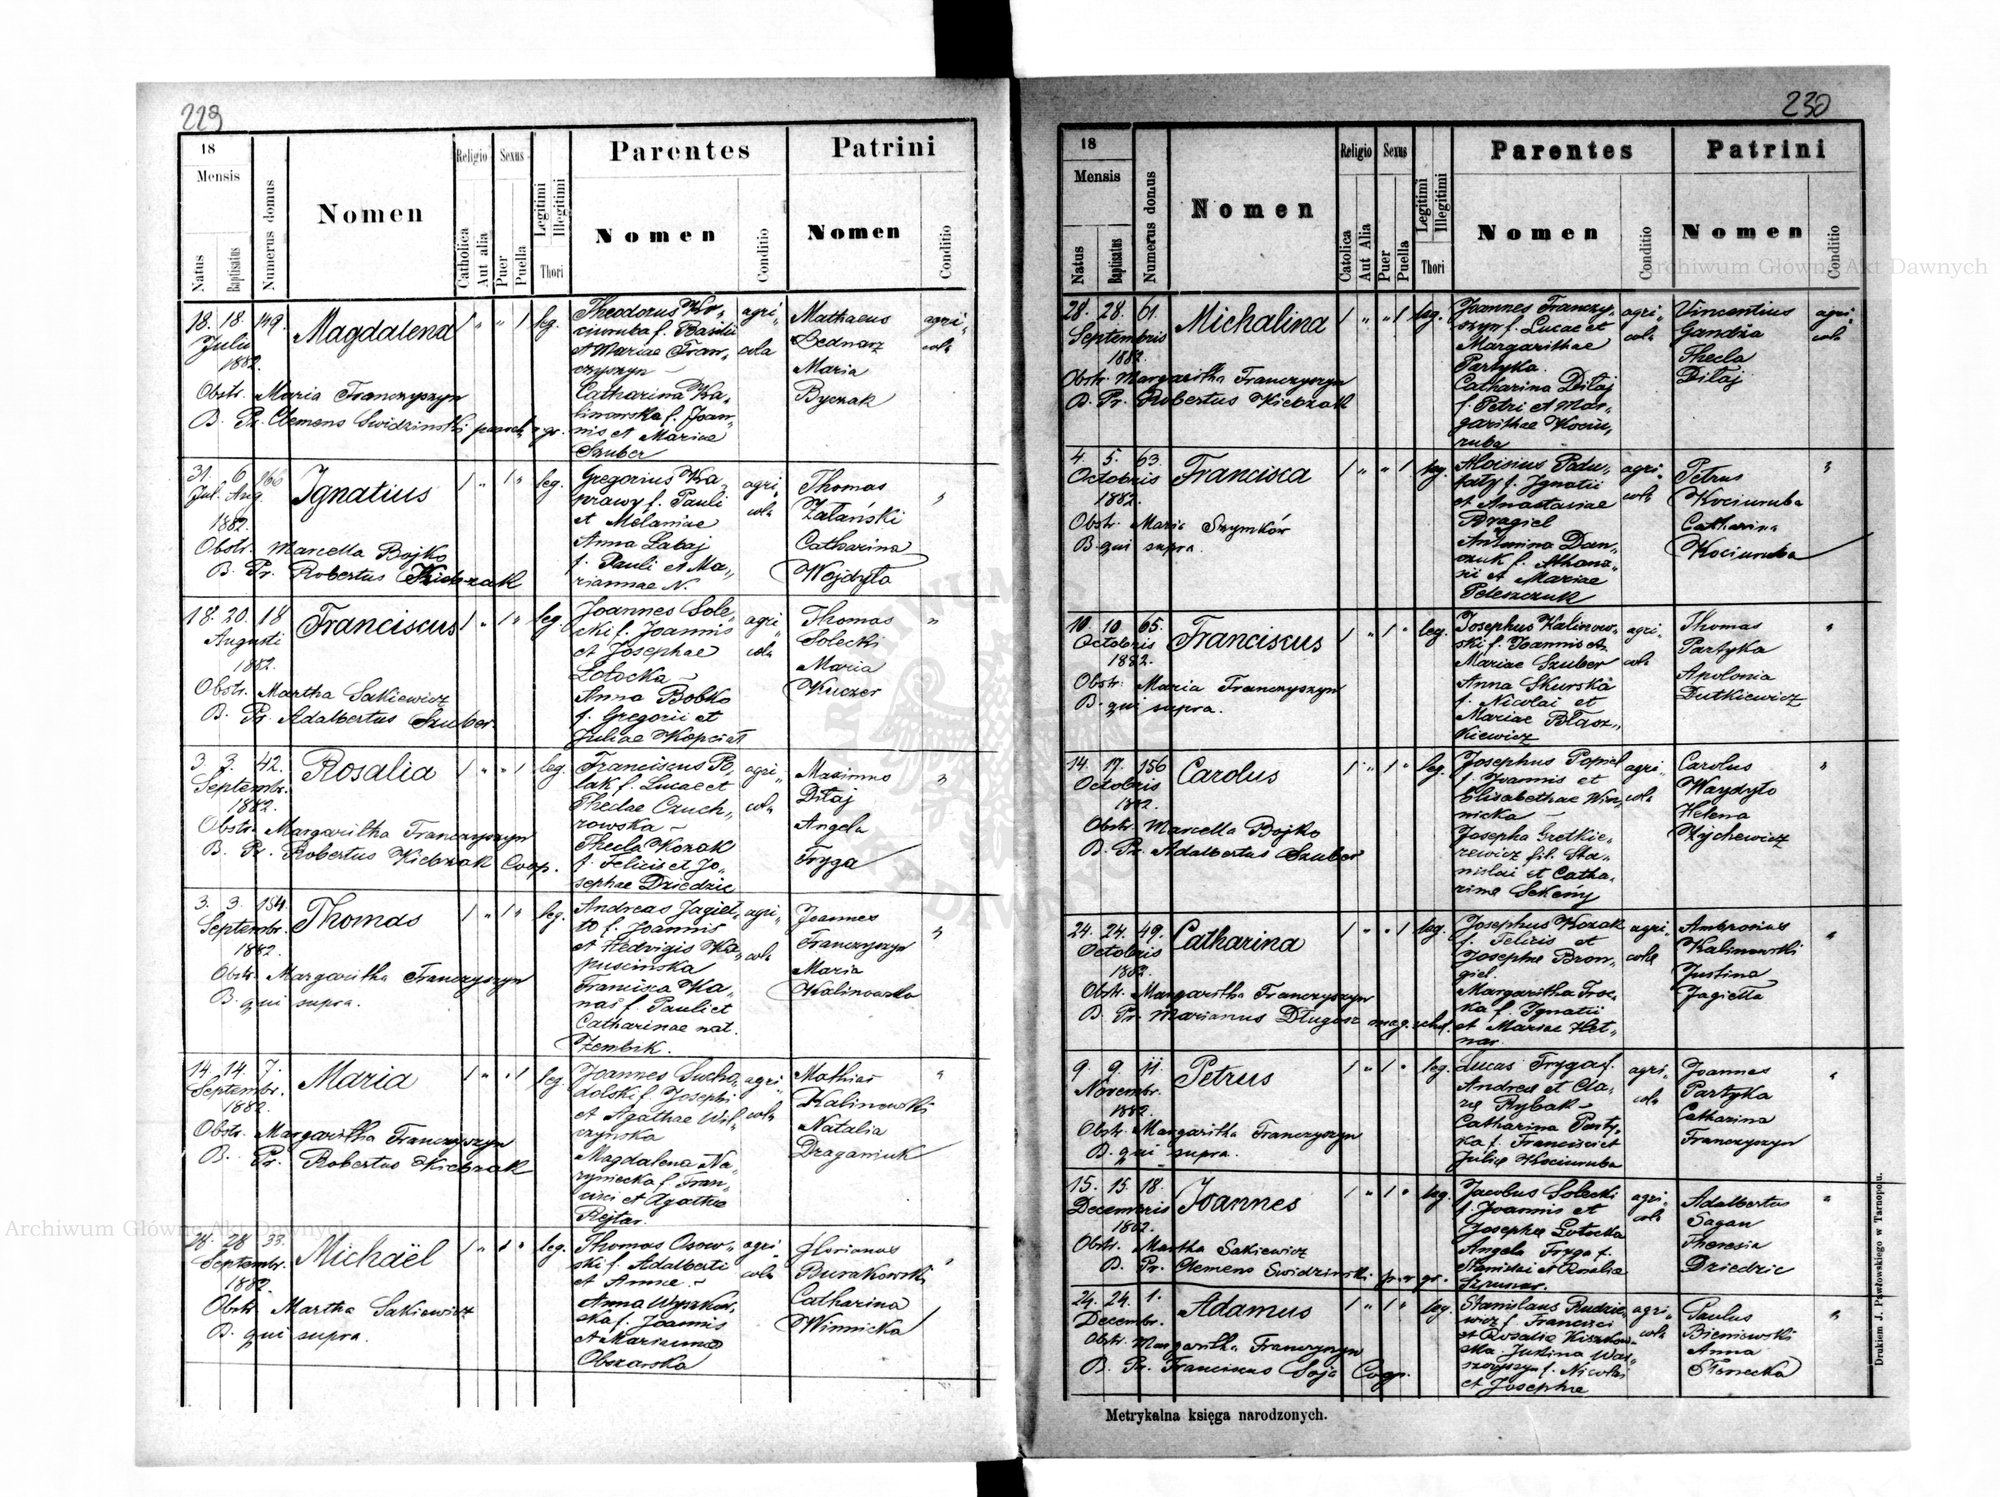 229
18
Mensis
Natus
Baptisatus
Numerus domus
Nomen
Religio
Catholica
Aut alia
Sexus
Puer
Puella
Legitimi
Illegitimi
Thori
Parentes
Nomen
Conditio
Patrini
Nomen
Conditio
18. 18. 149. Magdalena leg.
Julii
1882.
Obstr. Maria Franczyszyn
B. Pr. Clemens Swidzinski paroch. r. gr.
Theodorus Ko-
ciumba f. Basilii
et Mariae Fran-
czyszyn –
Catharina Ka-
linowska f. Joan-
nis et Mariae
Szuber
agri-
cola
Mathaeus
Bednarz
Maria
Byczak
agri-
cola
31. 6. 166 Ignatius leg.
Jul. Aug.
1882.
Obstr. Marcella Bojko
B. Pr. Robertus Kiebzak
Gregorius Ka-
prawy f. Pauli
et Melaniae
Anna Labaj
f. Pauli et Ma-
riannae N.
agri-
cola
Thomas
Załański
Catharina
Wojdyło
18. 20. 18 Franciscus leg.
Augusti
1882.
Obstr. Martha Sakiewicz
B. Pr. Adalbertus Szuber.
Joannes Sole-
cki f. Joannis
et Josephae
Lotocka –
Anna Bobko
f. Gregorii et
Juliae Kopciał
agri-
cola
Thomas
Solecki
Maria
Kuczer
3. 3. 42. Rosalia leg.
Septembr.
1882.
Obstr. Margaritha Franczyszyn
B. Pr. Robertus Kiebzak Coop.
Franciscus Po-
lak f. Lucae et
Theclae Czuch-
rowska –
Thecla Kozak
f. Felicis et Jo-
sephae Dziedzic
agri-
cola
Maximus
Ditaj
Angela
Fryga
3. 3. 154. Thomas leg.
Septembr.
1882.
Obstr. Margaritha Franczyszyn
B. qui supra.
Andreas Jagieł-
ło f. Joannis
et Hedvigis Ka-
puscinska
Francisca Ka-
nas f. Pauli et
Catharinae nat.
Zembik.
agri-
cola
Joannes
Franczyszyn
Maria
Kalinowska
14. 14. 7. Maria leg.
Septembr.
1882.
Obstr. Margaritha Franczyszyn
B. Pr. Robertus Kiebzak
Joannes Sucho-
dolski f. Josephi
et Agathae Wil-
czynska
Magdalena Na-
ryniecka f. Fran-
cisci et Agathae
Rejtar.
agri-
cola
Mathias
Kalinowski
Natalia
Draganiuk
28. 28. 33. Michaël leg.
Septembr.
1882.
Obstr. Martha Sakiewicz
B. qui supra.
Thomas Osow-
ski f. Adalberti
et Annae –
Anna Wyszkow-
ska f. Joannis
et Marianna
Obszarska
agri-
cola
Florianus
Burakowski
Catharina
Winnicka
230
18
Mensis
Natus
Baptisatus
Numerus domus
Nomen
Religio
Catolica
Aut Alia
Sexus
Puer
Puella
Legitimi
Illegitimi
Thori
Parentes
Nomen
Conditio
Patrini
Nomen
Conditio
28. 28. 61. Michalina leg.
Septembris
1882.
Obstr. Margaritha Franczyszyn
B. Pr. Robertus Kiebzak
Joannes Franczy-
szyn f. Lucae et
Margarithae
Partyka.
Catharina Ditaj
f. Petri et Mar-
garithae Kociu-
ruba
agri-
cola
Vincentius
Gandża
Thecla
Ditaj
agri-
cola
4. 5. 63. Francisca leg.
Octobris
1882.
Obstr. Maria Szymków
B. qui supra.
Aloisius Padu-
faty f. Ignatii
et Anastasiae
Bragiel
Antonina Dan-
czuk f. Athana-
sii et Mariae
Peleszczuk
agri-
cola
Petrus
Kociuruba
Catharina
Kociuruba
10. 10. 65. Franciscus leg.
Octobris
1882.
Obstr. Maria Franczyszyn
B. qui supra.
Josephus Kalinow-
ski f. Joannis et
Mariae Szuber
Anna Skurska
f. Nicolai et
Mariae Błasz-
kiewicz
agri-
cola
Thomas
Partyka
Apolonia
Dutkiewicz
14. 17. 156 Carolus leg.
Octobris
1882.
Obstr. Marcella Bojko
B. Pr. Adalbertus Szuber
Josephus Popiel
f. Joannis et
Elisabethae Win-
nicka –
Josepha Gretkie-
rewicz fil. Sta-
nislai et Catha-
rinae
agri-
cola
Carolus
Waydyło
Helena
Zychewicz
24. 24. 49. Catharina leg.
Octobris
1882.
Obstr. Margaritha Franczyszyn
B. Pr. Marianus Długosz mag. schol.
Josephus Kozak
f. Felicis et
Josephae Bron-
giel.
Margaritha Troc-
ka f. Ignatii
et Mariae Het-
nar.
agri-
cola
Ambrosius
Kalinowski
Justina
Jagiełła
9. 9. 11. Petrus leg.
Novembr.
1882.
Obstr. Margaritha Franczyszyn
B. qui supra.
Lucas Fryga f.
Andreae et Cla-
rae Rybak –
Catharina Party-
ka f. Francisci et
Juliae Kociuruba
agri-
cola
Joannes
Partyka
Catharina
Franczyszyn
15. 15. 18. Joannes leg.
Decembris
1882.
Obstr. Martha Sakiewicz
B. Pr. Clemens Swidzinski par. gr.
Jacobus Solecki
f. Joannis et
Josephae Lotocka
Angela Fryga f.
Stanislai et Rosaliae
agri-
cola
Adalbertus
Sagan
Theresia
Dziedzic
24. 24. 1. Adamus leg.
Decembr.
Obstr. Margaritha Franczyszyn
B. Pr. Franciscus Soja Coop.
Stanislaus Rudzie-
wicz f. Francisci
et Rosaliae Kiszkow-
ska. Justina Was-
szczyszyn f. Nicolai
et Josephae
agri-
cola
Paulus
Bieniowski
Anna
Słonecka
Metrykalna księga narodzonych.
Drukiem J. Pawłowskiego w Tarnopolu.
Archiwum Główne Akt Dawnych
Archiwum Główne Akt Dawnych